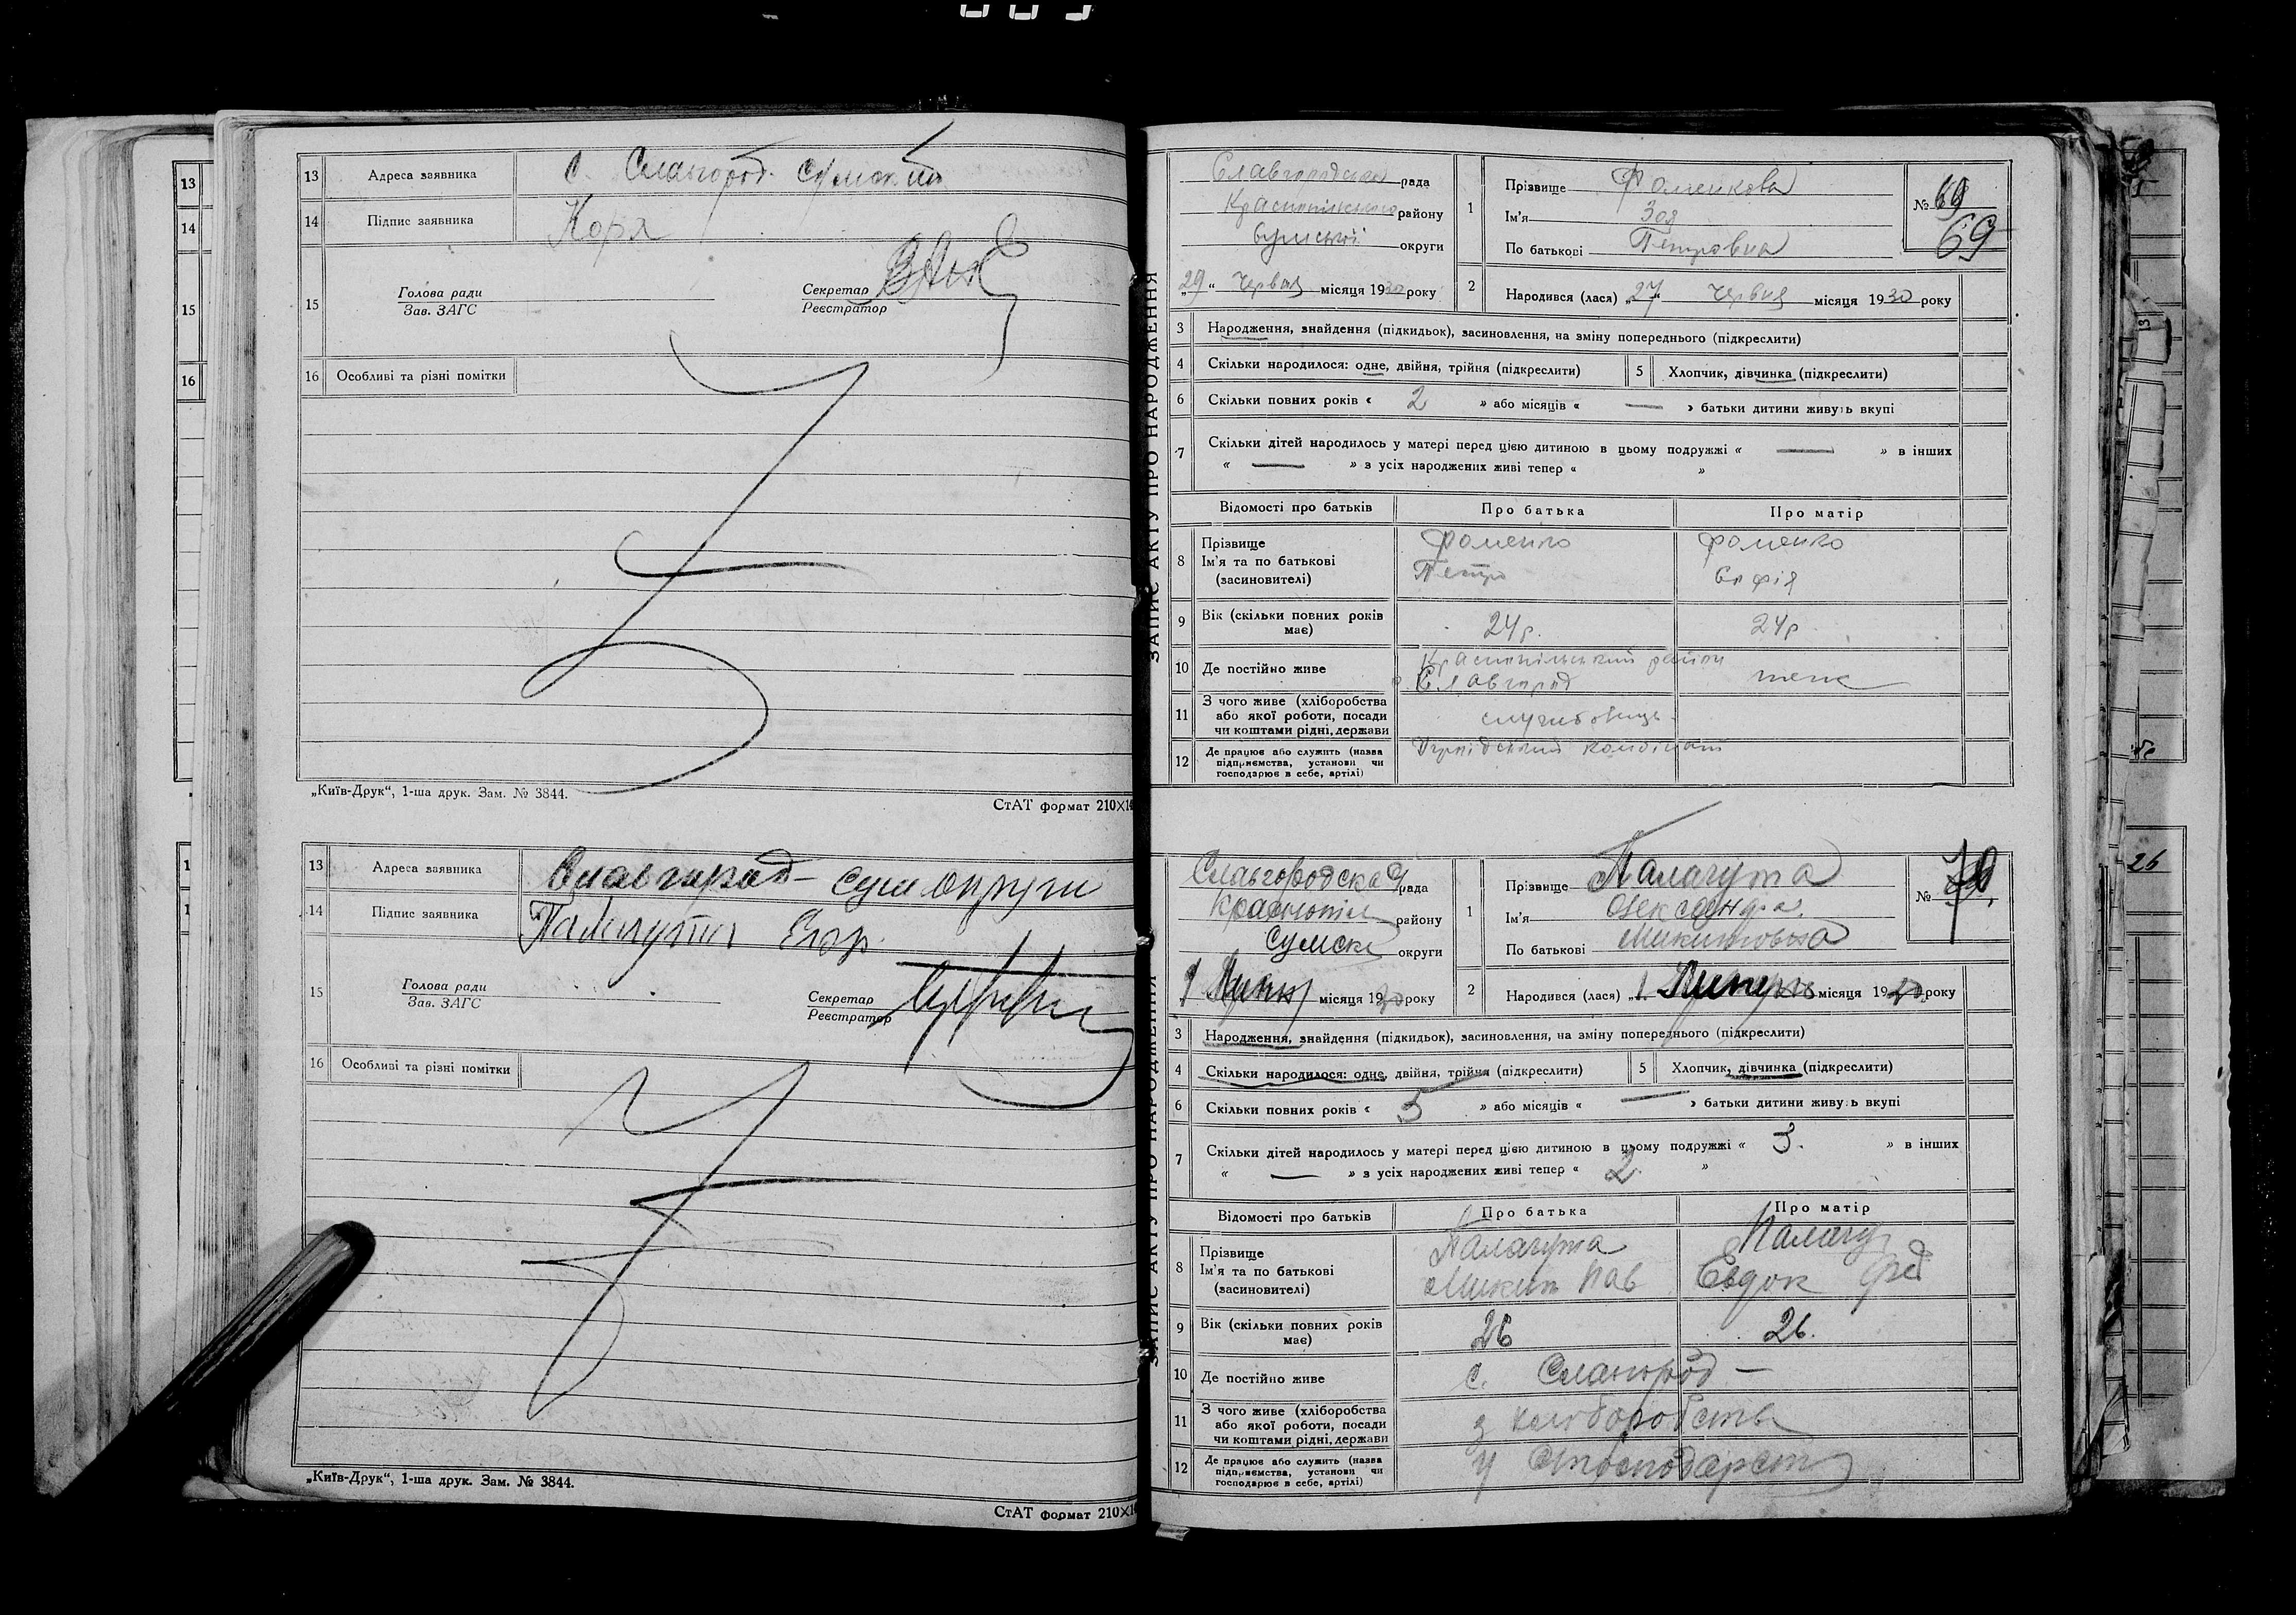 13 Адреса заявника с. Славгород. Сумск.
14 Підпис заявника Коря
15 Голова ради
Зав. ЗАГС
Секретар
Реєстратор
16 Особливі та різні помітки
„Київ-Друк“, 1-ша друк. Зам. № 3844.
СтАТ формат 210×1
13 Адреса заявника Славгород – Сум округи
14 Підпис заявника Палагута Егор.
15 Голова ради
Зав. ЗАГС
Секретар
Реєстратор
16 Особливі та різні помітки
„Київ-Друк“, 1-ша друк. Зам. № 3844.
СтАТ формат 210×1
ЗАПИС АКТУ ПРО НАРОДЖЕННЯ
Славгородська рада
Краснопільського району
Сумської округи
„29“ червня місяця 1930 року
1 Прізвище Фоменкова
Ім'я Зоя
По батькові Петровна
№ 69
69
2 Народився (лася) „27“ червня місяця 1930 року
3 Народження, знайдення (підкидьок), засиновлення, на зміну попереднього (підкреслити)
4 Скільки народилося: одне, двійня, трійня (підкреслити) 5 Хлопчик, дівчинка (підкреслити)
6 Скільки повних років « 2 » або місяців « — » батьки дитини живуть вкупі
7 Скільки дітей народилось у матері перед цією дитиною в цьому подружжі « — » в інших
« — » з усіх народжених живі тепер « »
Відомості про батьків Про батька Про матір
8 Прізвище Фоменко Фоменко
Ім'я та по батькові Петро Софія
(засиновителі)
9 Вік (скільки повних років має) 24р. 24р
10 Де постійно живе Краснопільський район тепе
с Славгород
11 З чого живе (хліборобства
або якої роботи, посади службовець
чи коштами рідні, держави
12 Де працює або служить (назва комбінат
підприємства, установи чи
господарює в себе, артілі)
ЗАПИС АКТУ ПРО НАРОДЖЕННЯ
Славгородска рада
Краснопіл району
Сумскі округи
1 місяця 1930 року
1 Прізвище Палагута
Ім'я Олександра
По батькові Микитовна
№ 70.
2 Народився (лася) „1. місяця 1930 року
3 Народження, знайдення (підкидьок), засиновлення, на зміну попереднього (підкреслити)
4 Скільки народилося: одне, двійня, трійня (підкреслити) 5 Хлопчик, дівчинка (підкреслити)
6 Скільки повних років « 5 » або місяців « — » батьки дитини живуть вкупі
7 Скільки дітей народилось у матері перед цією дитиною в цьому подружжі « 3. » в інших
« — » з усіх народжених живі тепер « 2. »
Відомості про батьків Про батька Про матір
8 Прізвище Палагута Палагу
Ім'я та по батькові Микит Пав Евдок Фед
(засиновителі)
9 Вік (скільки повних років має) 26 26.
10 Де постійно живе с. Славгород –
11 З чого живе (хліборобства
або якої роботи, посади з хліборобства
чи коштами рідні, держави
12 Де працює або служить (назва у
підприємства, установи чи
господарює в себе, артілі)